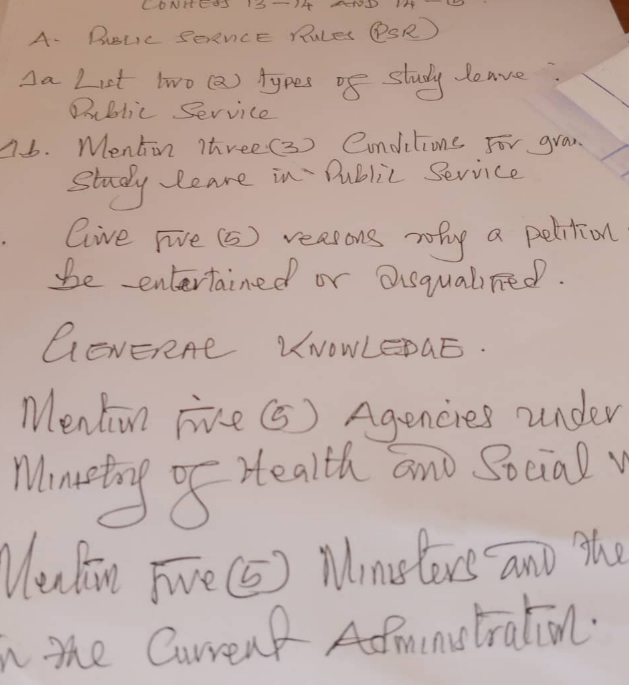 CONHESS 13 - 14 AND 14 - 15
A - PUBLIC SERVICE RULES (PSR)
1a List two (2) types of study leave
Public Service
1b. Mention three (3) Conditions for gran
Study leave in Public Service
. Give Five (5) reasons why a petition
be entertained or Disqualified.
GENERAL KNOWLEDGE.
Mention five (5) Agencies under
Ministry of Health and Social W
Mention Five (5) Ministers and the
in the Current Administration.